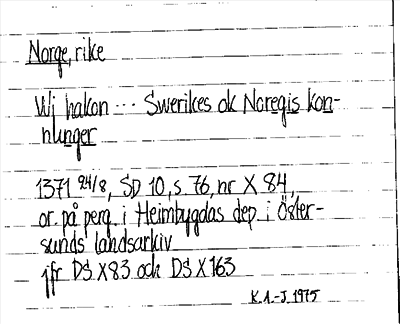 Norge, rike
Wj hakon ... Swerikes ok Noregis kon-
hunger
1371 24/8, SD 10, s 76, nr X 84,
or. på perg. i Heimbygdas dep. i Öster-
sunds landsarkiv
jfr DS X 83 och DS X 163
K.A.-J. 1975